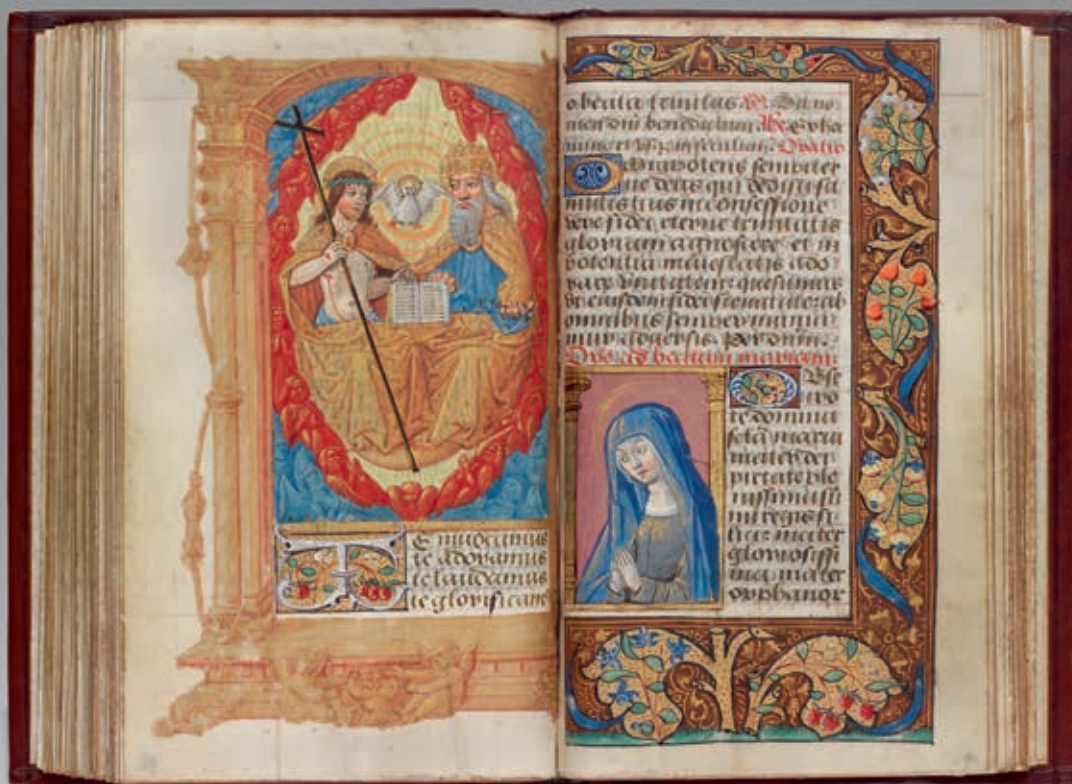 Te inuocamus
te adoramus
te laudamus
te glorificam
o beata trinitas Sit no
men dñi benedictum Ex hoc
nunc et in seculum. Oratio
Omnipotens sempiter
ne deus qui dedisti fa
mulis tuis in confessione
vere fidei eterne trinitatis
gloriam agnoscere et in
potentia maiestatis ado
rare unitatem quesumus
ut eiusdem fidei firmitate ab
omnibus semper munia
mur aduersis. Per dñm.
Oro ad beatam mariam
Obse
cro
te domina
scã maria
mater dei
pietate ple
nissima sũ
mi regis fi
lia: mater
gloriosissi
ma: mater
orphanor